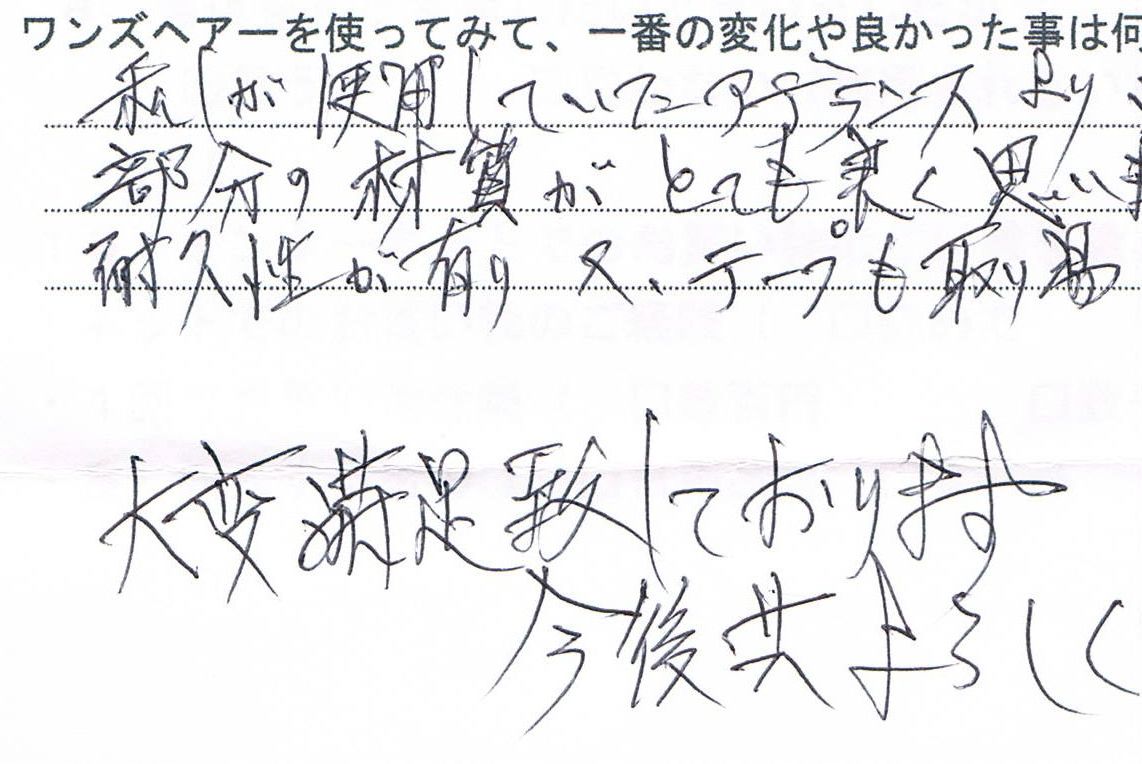 ワンズヘアーを使ってみて、一番の変化や良かった事は何
私しが使用していたアデランスより、
部分の材質がとても良く思いま
耐久性が有り又、テープも取り易
大変満足致しております
今後共よろしく